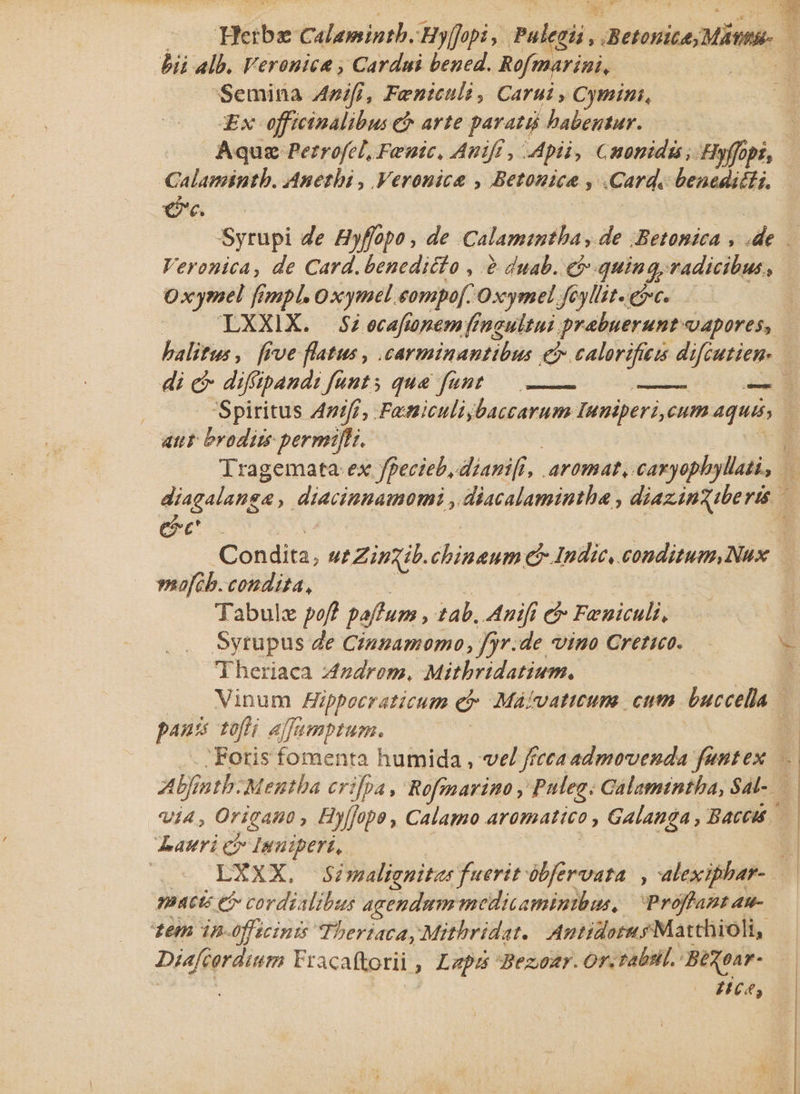 Herbæ Calaminth. Hyſſopi, Pulegii, Betonicæ, Marru-
bii alb. Veronicæ, Cardui bened. Roſmarini,
Semina Aniſi, Fœniculi, Carui, Cymini,
Ex officinalibus & arte paratis habentur.
Aquæ Petroſel, Fœnic, Aniſi, Apii, Cnonidis, Hyſſopi,
Calaminth. Anethi, Veronicæ, Betonicæ, Card. benedicti.
&c.
Syrupi de Hyſſopo, de Calamintha, de Betonica, de
Veronica, de Card. benedicto, è duab. & quinq, radicibus,
Oxymel ſimpl. Oxymel compoſ. Oxymel ſcyllit. &c.
LXXIX. Si ocaſionem ſingultui præbuerunt vapores,
halitus, ſive flatus, carminantibus & calorificis diſcutien-
di & diſſipandi ſunt; quæ ſunt — — —
Spiritus Aniſi, Fœniculi, baccarum Iuniperi, cum aquis,
aut brodiis permiſti.
Tragemata ex ſpecieb, dianiſi, aromat, caryophyllati,
diagalangæ, diacinnamomi, diacalaminthæ, diazinziberis
&c
Condita, ut Zinzib. chinæum & Indic, conditum, Nux
moſch. condita,
Tabulæ poſt paſtum, tab. Aniſi & Fœniculi,
Syrupus de Cinnamomo, ſyr. de vino Cretico.
Theriaca Androm, Mithridatium.
Vinum Hippocraticum & Malvaticum cum buccella
panis toſti aſſumptum.
Foris fomenta humida, vel ſicca admovenda ſunt ex
Abſinth. Mentha criſpa, Roſmarino, Puleg. Calamintha, Sal-
via, Origano, Hyſſopo, Calamo aromatico, Galanga, Baccis
Lauri & Iuniperi,
LXXX. Si malignitas fuerit obſervata, alexiphar-
macis & cordialibus agendum medicaminibus, Proſtant au-
tem in officinis Theriaca, Mithridat. Antidotus Matthioli,
Diaſcordium Fracaſtorii, Lapis Bezoar. Or. tabul. Bezoar-
ticæ,